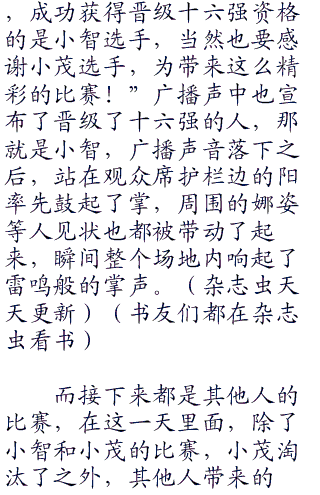 ，成功获得晋级十六强资格
的是小智选手，当然也要感
谢小茂选手，为带来这么精
彩的比赛！”广播声中也宣
布了晋级了十六强的人，那
就是小智，广播声音落下之
后，站在观众席护栏边的阳
率先鼓起了掌，周围的娜姿
等人见状也都被带动了起
来，瞬间整个场地内响起了
雷鸣般的掌声。（杂志虫天
天更新）（书友们都在杂志
虫看书）
而接下来都是其他人的
比赛，在这一天里面，除了
小智和小茂的比赛，小茂淘
汰了之外，其他人带来的